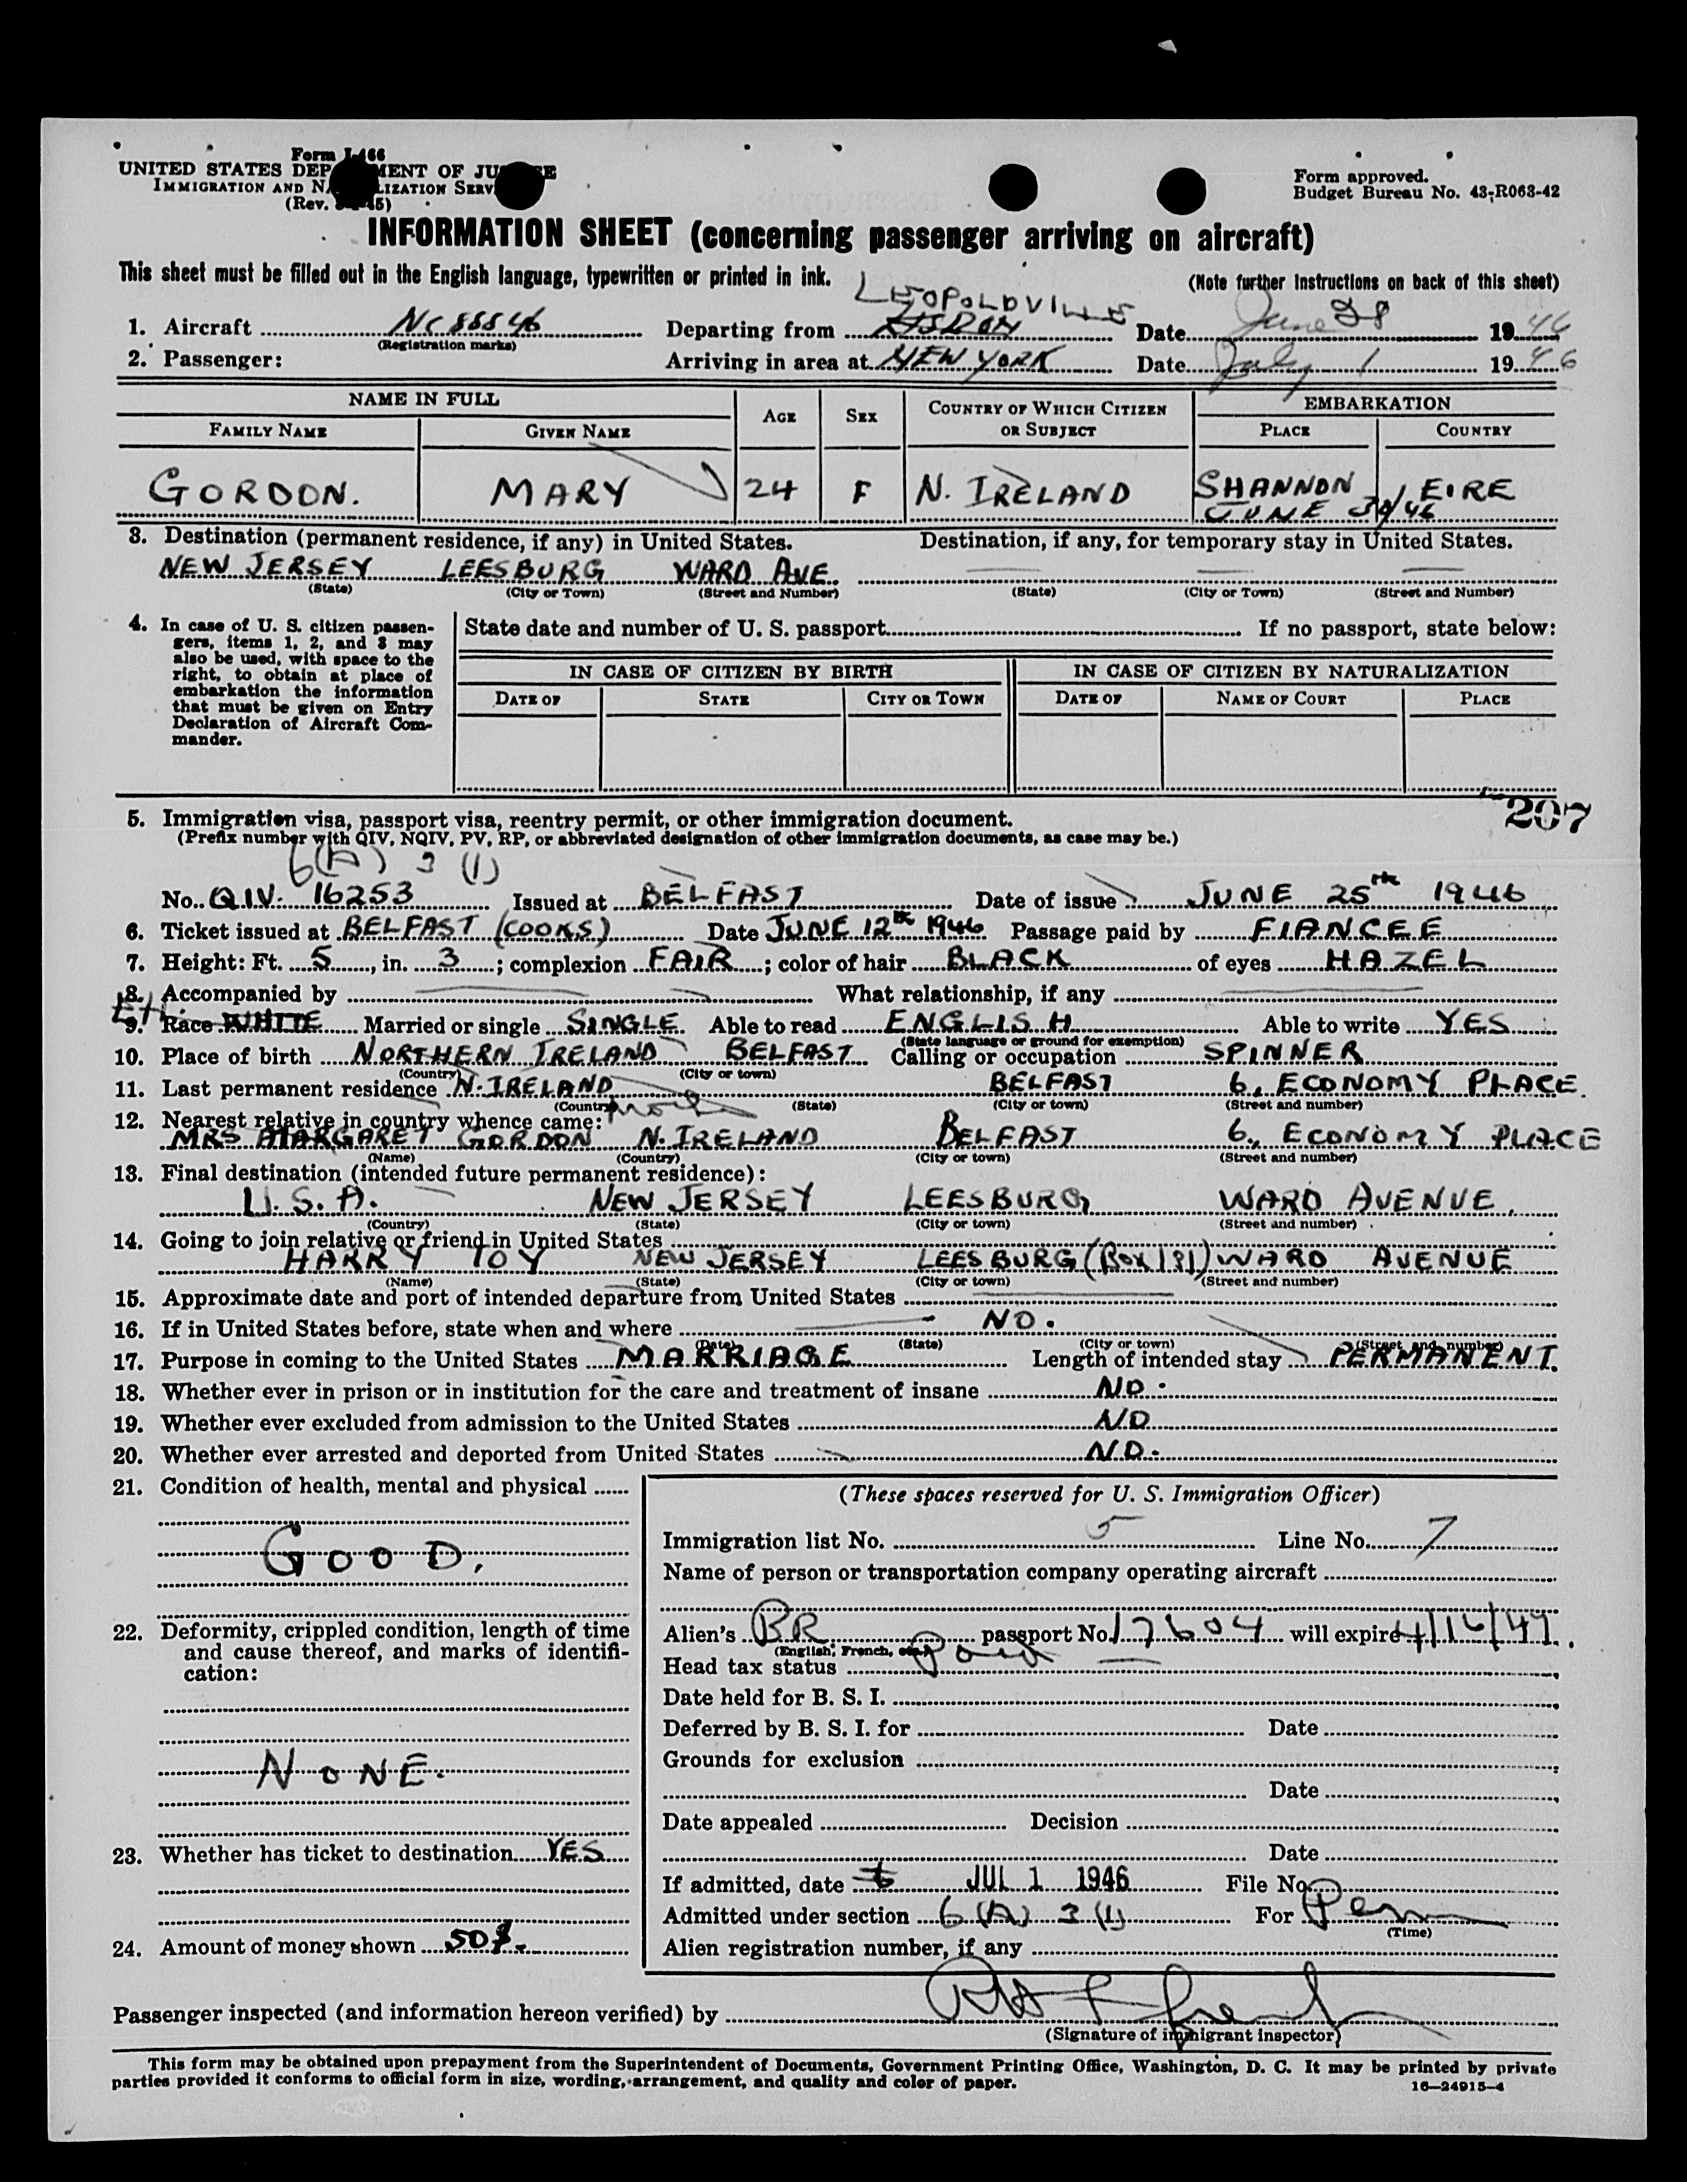 Form I-466
UNITED STATES DEP MENT OF JU E
IMMIGRATION AND NA LIZATION SERV
(Rev. 45)
Form approved.
Budget Bureau No. 43-R063-42
INFORMATION SHEET (concerning passenger arriving on aircraft)
This sheet must be filled out in the English language, typewritten or printed in ink.
(Note further instructions on back of this sheet)
LEOPOLDVILLE
1. Aircraft NC 88846 Departing from Date June 28 1946
(Registration marks)
2. Passenger: Arriving in area at NEW YORK Date July 1 1946
NAME IN FULL AGE SEX COUNTRY OF WHICH CITIZEN OR SUBJECT EMBARKATION
FAMILY NAME GIVEN NAME PLACE COUNTRY
GORDON. MARY 24 F N. IRELAND SHANNON EIRE
JUNE 30/46
3. Destination (permanent residence, if any) in United States. Destination, if any, for temporary stay in United States.
NEW JERSEY LEESBURG WARD AVE.
(State) (City or Town) (Street and Number) (State) (City or Town) (Street and Number)
4. In case of U. S. citizen passengers, items 1, 2, and 3 may also be used, with space to the right, to obtain at place of embarkation the information that must be given on Entry Declaration of Aircraft Commander.
State date and number of U. S. passport If no passport, state below:
IN CASE OF CITIZEN BY BIRTH IN CASE OF CITIZEN BY NATURALIZATION
DATE OF STATE CITY OR TOWN DATE OF NAME OF COURT PLACE
207
5. Immigration visa, passport visa, reentry permit, or other immigration document.
(Prefix number with QIV, NQIV, PV, RP, or abbreviated designation of other immigration documents, as case may be.)
6(A) 3 (1)
No. Q.I.V. 16253 Issued at BELFAST Date of issue JUNE 25th 1946
6. Ticket issued at BELFAST (COOKS) Date JUNE 12th 1946 Passage paid by FIANCEE
7. Height: Ft. 5, in. 3; complexion FAIR; color of hair BLACK of eyes HAZEL
8. Accompanied by What relationship, if any
9. Race WHITE Married or single SINGLE. Able to read ENGLISH Able to write YES
(State language or ground for exemption)
10. Place of birth NORTHERN IRELAND BELFAST Calling or occupation SPINNER
(Country) (City or town)
11. Last permanent residence N. IRELAND BELFAST 6, ECONOMY PLACE.
(Country) (State) (City or town) (Street and number)
12. Nearest relative in country whence came:
MRS MARGARET GORDON N. IRELAND BELFAST 6, ECONOMY PLACE
(Name) (Country) (City or town) (Street and number)
13. Final destination (intended future permanent residence):
U.S.A. NEW JERSEY LEESBURG WARD AVENUE,
(Country) (State) (City or town) (Street and number)
14. Going to join relative or friend in United States
HARRY TOY NEW JERSEY LEESBURG (BOX 181) WARD AVENUE
(Name) (State) (City or town) (Street and number)
15. Approximate date and port of intended departure from United States
16. If in United States before, state when and where NO.
(Date) (State) (City or town) (Street and number)
17. Purpose in coming to the United States MARRIAGE Length of intended stay PERMANENT.
18. Whether ever in prison or in institution for the care and treatment of insane NO.
19. Whether ever excluded from admission to the United States NO
20. Whether ever arrested and deported from United States NO.
21. Condition of health, mental and physical
GOOD.
22. Deformity, crippled condition, length of time and cause thereof, and marks of identification:
NONE.
23. Whether has ticket to destination YES
24. Amount of money shown 50$.
(These spaces reserved for U. S. Immigration Officer)
Immigration list No. 5 Line No. 7
Name of person or transportation company operating aircraft
Alien's BR. passport No. 17604 will expire 4/16/47.
(English, French, etc.)
Head tax status Paid
Date held for B. S. I.
Deferred by B. S. I. for Date
Grounds for exclusion
Date
Date appealed Decision
Date
If admitted, date JUL 1 1946 File No.
Admitted under section 6(A) 3 (1) For Perm
(Time)
Alien registration number, if any
Passenger inspected (and information hereon verified) by
(Signature of immigrant inspector)
This form may be obtained upon prepayment from the Superintendent of Documents, Government Printing Office, Washington, D. C. It may be printed by private
parties provided it conforms to official form in size, wording, arrangement, and quality and color of paper.
16—24915-4